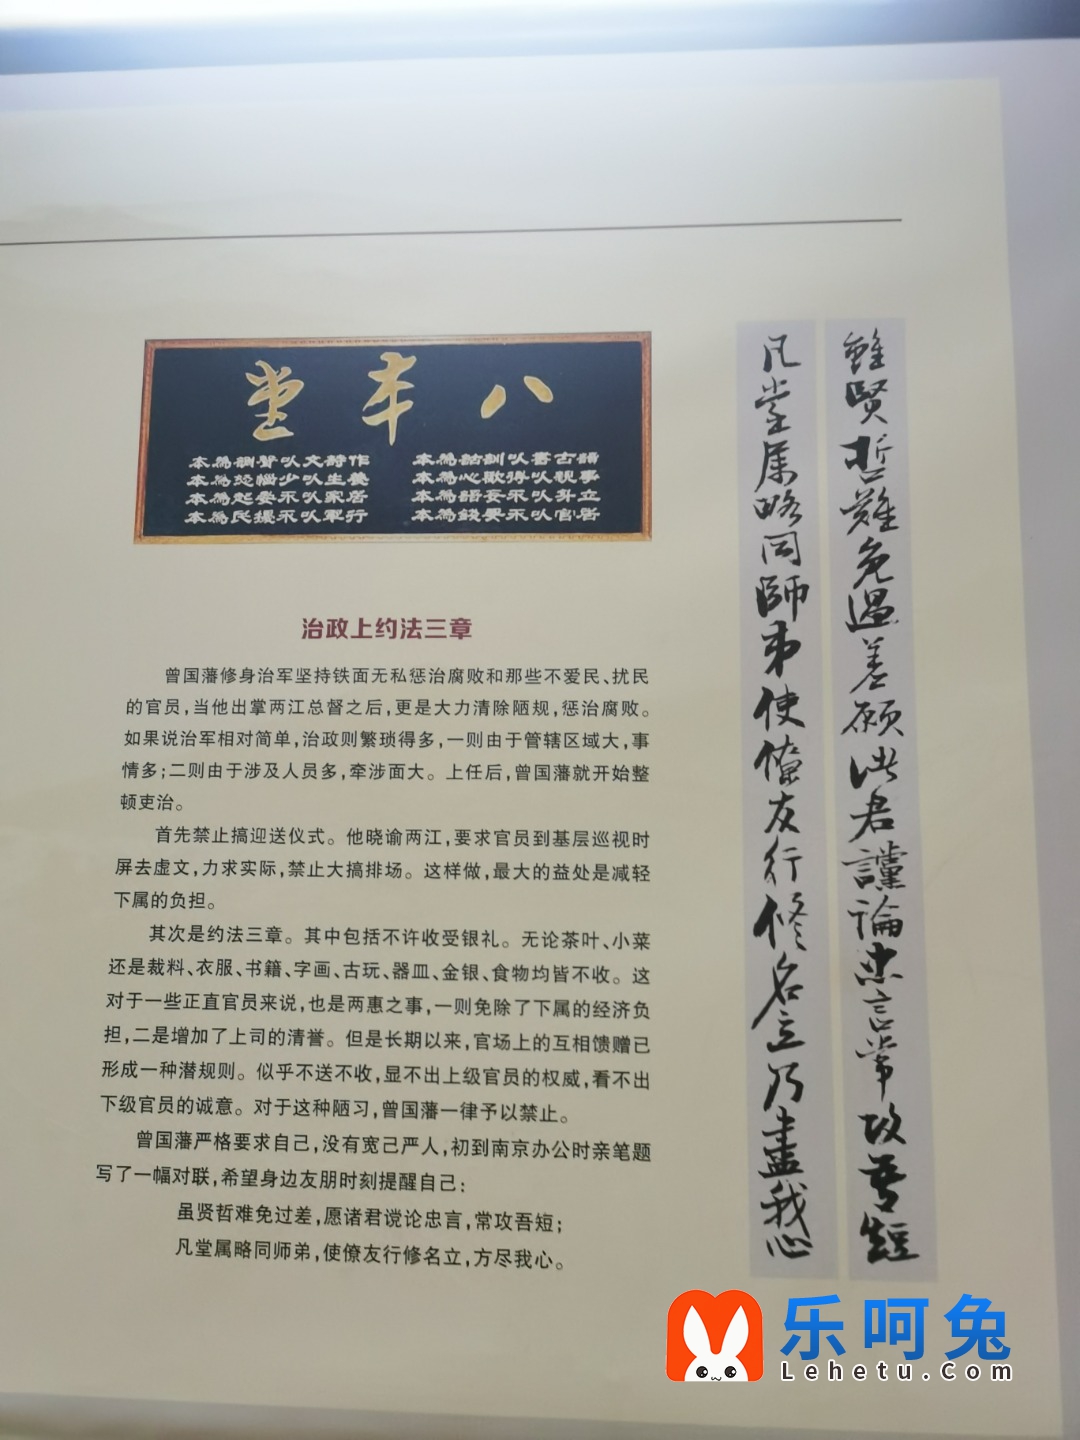 八本堂
讀古書以訓詁為本
事親以得歡心為本
立身以不妄語為本
居官以不要錢為本
作詩文以聲調為本
養生以少惱怒為本
居家以不晏起為本
行軍以不擾民為本
雖賢哲難免過差願諸君讜論忠言常攻吾短
凡堂屬略同師弟使僚友行修名立乃盡我心
治政上约法三章
曾国藩修身治军坚持铁面无私惩治腐败和那些不爱民、扰民
的官员，当他出掌两江总督之后，更是大力清除陋规，惩治腐败。
如果说治军相对简单，治政则繁琐得多，一则由于管辖区域大，事
情多；二则由于涉及人员多，牵涉面大。上任后，曾国藩就开始整
顿吏治。
首先禁止搞迎送仪式。他晓谕两江，要求官员到基层巡视时
屏去虚文，力求实际，禁止大搞排场。这样做，最大的益处是减轻
下属的负担。
其次是约法三章。其中包括不许收受银礼。无论茶叶、小菜
还是裁料、衣服、书籍、字画、古玩、器皿、金银、食物均皆不收。这
对于一些正直官员来说，也是两惠之事，一则免除了下属的经济负
担，二是增加了上司的清誉。但是长期以来，官场上的互相馈赠已
形成一种潜规则。似乎不送不收，显不出上级官员的权威，看不出
下级官员的诚意。对于这种陋习，曾国藩一律予以禁止。
曾国藩严格要求自己，没有宽己严人，初到南京办公时亲笔题
写了一幅对联，希望身边友朋时刻提醒自己：
虽贤哲难免过差，愿诸君谠论忠言，常攻吾短；
凡堂属略同师弟，使僚友行修名立，方尽我心。
乐呵兔
Lehetu.Com